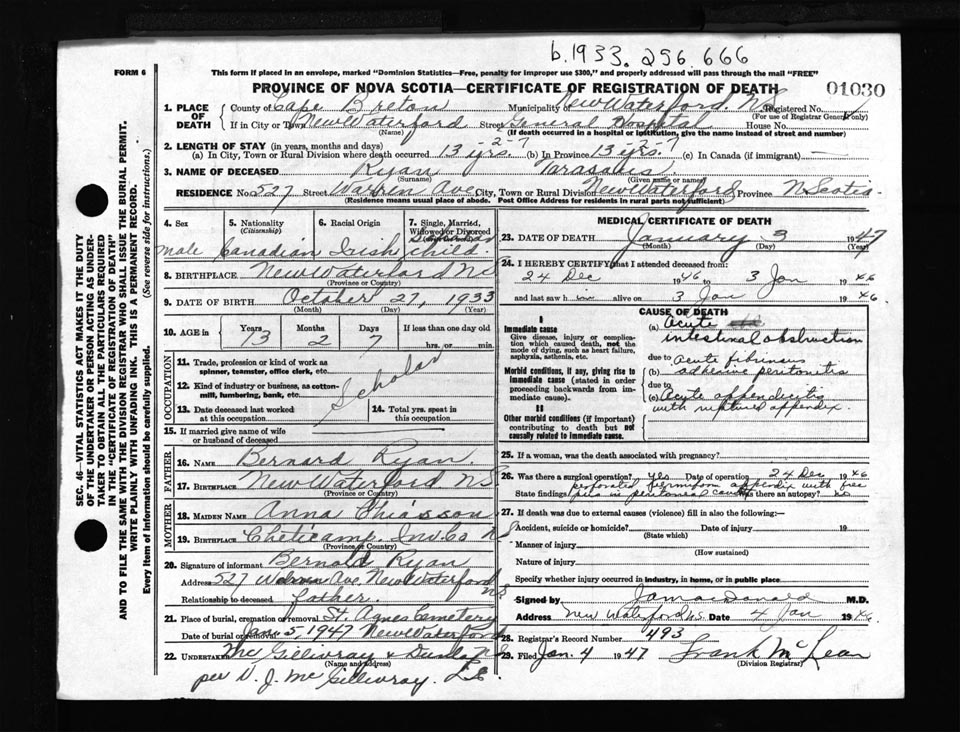 b.1933. 256.666
FORM 6
This form if placed in an envelope, marked "Dominion Statistics—Free, penalty for improper use $300," and properly addressed will pass through the mail "FREE"
PROVINCE OF NOVA SCOTIA—CERTIFICATE OF REGISTRATION OF DEATH
01030
1. PLACE OF DEATH County of Cape Breton Municipality of New Waterford NS Registered No.
(For use of Registrar General only)
If in City or Town New Waterford Street General Hospital House No.
(Name) (If death occurred in a hospital or institution, give the name instead of street and number)
2. LENGTH OF STAY (in years, months and days)
(a) In City, Town or Rural Division where death occurred 13 yrs. -2-7 (b) In Province 13 yrs. -2-7 (c) In Canada (if immigrant) —
3. NAME OF DECEASED Ryan
(Surname) (Given name or names)
RESIDENCE No. 527 Street Warren Ave. City, Town or Rural Division New Waterford Province N Scotia
(Residence means usual place of abode. Post Office Address for residents in rural parts not sufficient)
4. Sex 5. Nationality (Citizenship) 6. Racial Origin 7. Single, Married, Widowed or Divorced
male Canadian Irish child.
8. BIRTHPLACE New Waterford NS
(Province or Country)
9. DATE OF BIRTH October 27, 1933
(Month) (Day) (Year)
10. AGE in Years Months Days If less than one day
13 2 7 hrs. or min.
OCCUPATION
11. Trade, profession or kind of work as spinner, teamster, office clerk, etc.
12. Kind of industry or business, as cotton-mill, lumbering, bank, etc.
Scholar
13. Date deceased last worked at this occupation
14. Total yrs. spent in this occupation
15. If married give name of wife or husband of deceased
FATHER
16. NAME Bernard Ryan.
17. BIRTHPLACE New Waterford NS
(Province or Country)
MOTHER
18. MAIDEN NAME Anna Chiasson
19. BIRTHPLACE Cheticamp. Inv. Co NS
(Province or Country)
20. Signature of informant Bernard Ryan
Address 527 Warren Ave. New Waterford NS
Relationship to deceased father.
21. Place of burial, cremation or removal St. Agnes Cemetery
Date of burial or removal Jan 5, 1947 New Waterford NS
22. UNDERTAKER McGillivray & Dunlap
(Name and address)
per D. J. McGillivray.
MEDICAL CERTIFICATE OF DEATH
23. DATE OF DEATH January 3 1947
(Month) (Day) (Year)
24. I HEREBY CERTIFY that I attended deceased from:
24 Dec 1946 to 3 Jan 1946
and last saw him alive on 3 Jan 1946.
CAUSE OF DEATH
I
Immediate cause
Give disease, injury or complication which caused death, not the mode of dying, such as heart failure, asphyxia, asthenia, etc.
(a) Acute intestinal obstruction
due to
Morbid conditions, if any, giving rise to immediate cause (stated in order proceeding backwards from immediate cause).
(b) acute fibrinous adhesive peritonitis
due to
(c) Acute appendicitis with ruptured appendix.
II
Other morbid conditions (if important) contributing to death but not causally related to immediate cause.
25. If a woman, was the death associated with pregnancy?
26. Was there a surgical operation? yes Date of operation 24 Dec 1946
State findings perforated appendix with free pus in peritoneal cavity Was there an autopsy? no
27. If death was due to external causes (violence) fill in also the following:—
Accident, suicide or homicide? Date of injury 19
(State which)
Manner of injury
(How sustained)
Nature of injury
Specify whether injury occurred in industry, in home, or in public place
Signed by M.D.
Address New Waterford N.S. Date 4 Jan 1946
28. Registrar's Record Number 493
29. Filed Jan. 4 1947 Frank McLean
(Division Registrar)
SEC. 46—VITAL STATISTICS ACT MAKES IT THE DUTY
OF THE UNDERTAKER OR PERSON ACTING AS UNDER-
TAKER TO OBTAIN ALL THE PARTICULARS REQUIRED
IN THE "CERTIFICATE OF REGISTRATION OF DEATH"
AND TO FILE THE SAME WITH THE DIVISION REGISTRAR WHO SHALL ISSUE THE BURIAL PERMIT.
WRITE PLAINLY WITH UNFADING INK. THIS IS A PERMANENT RECORD.
Every item of information should be carefully supplied. (See reverse side for instructions.)